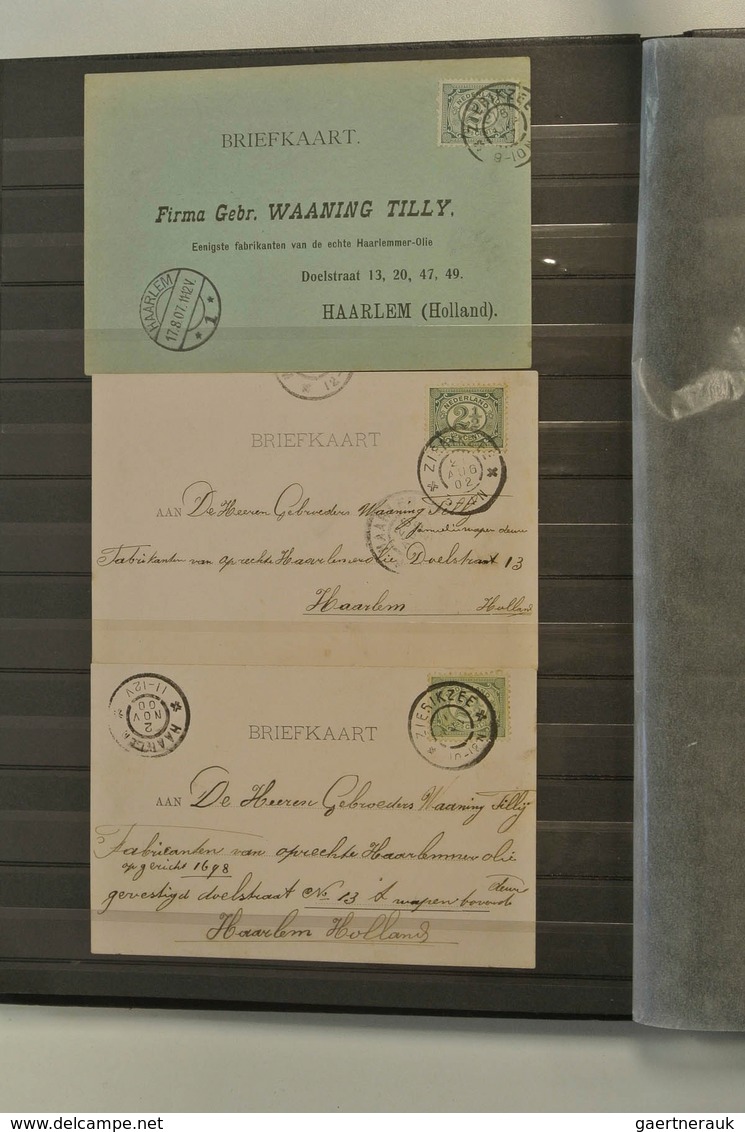 NEDERLAND
ZIERIKZEE
BRIEFKAART.
Firma Gebr. WAANING TILLY.
Eenigste fabrikanten van de echte Haarlemmer-Olie
Doelstraat 13, 20, 47, 49.
HAARLEM (Holland).
HAARLEM
17.8.07.11-12V.
1
12-
NEDERLAND
2½
CENT
BRIEFKAART
ZIERIKZEE
AUG
02
AAN De Heeren Gebroeders Waaning Tilly
Fabrikanten van oprechte Haarlemerolie Doelstraat 13
Haarlem Holland
HAARLEM
2
NOV
00
11-12V
ZIERIKZEE
BRIEFKAART
AAN De Heeren Gebroeders Waaning Tillij
Fabricanten van oprechte Haarlemmer olie
opgericht 1698
gevestigd doelstraat No 13 't wapen boven de deur
Haarlem Holland
gaertnerauk